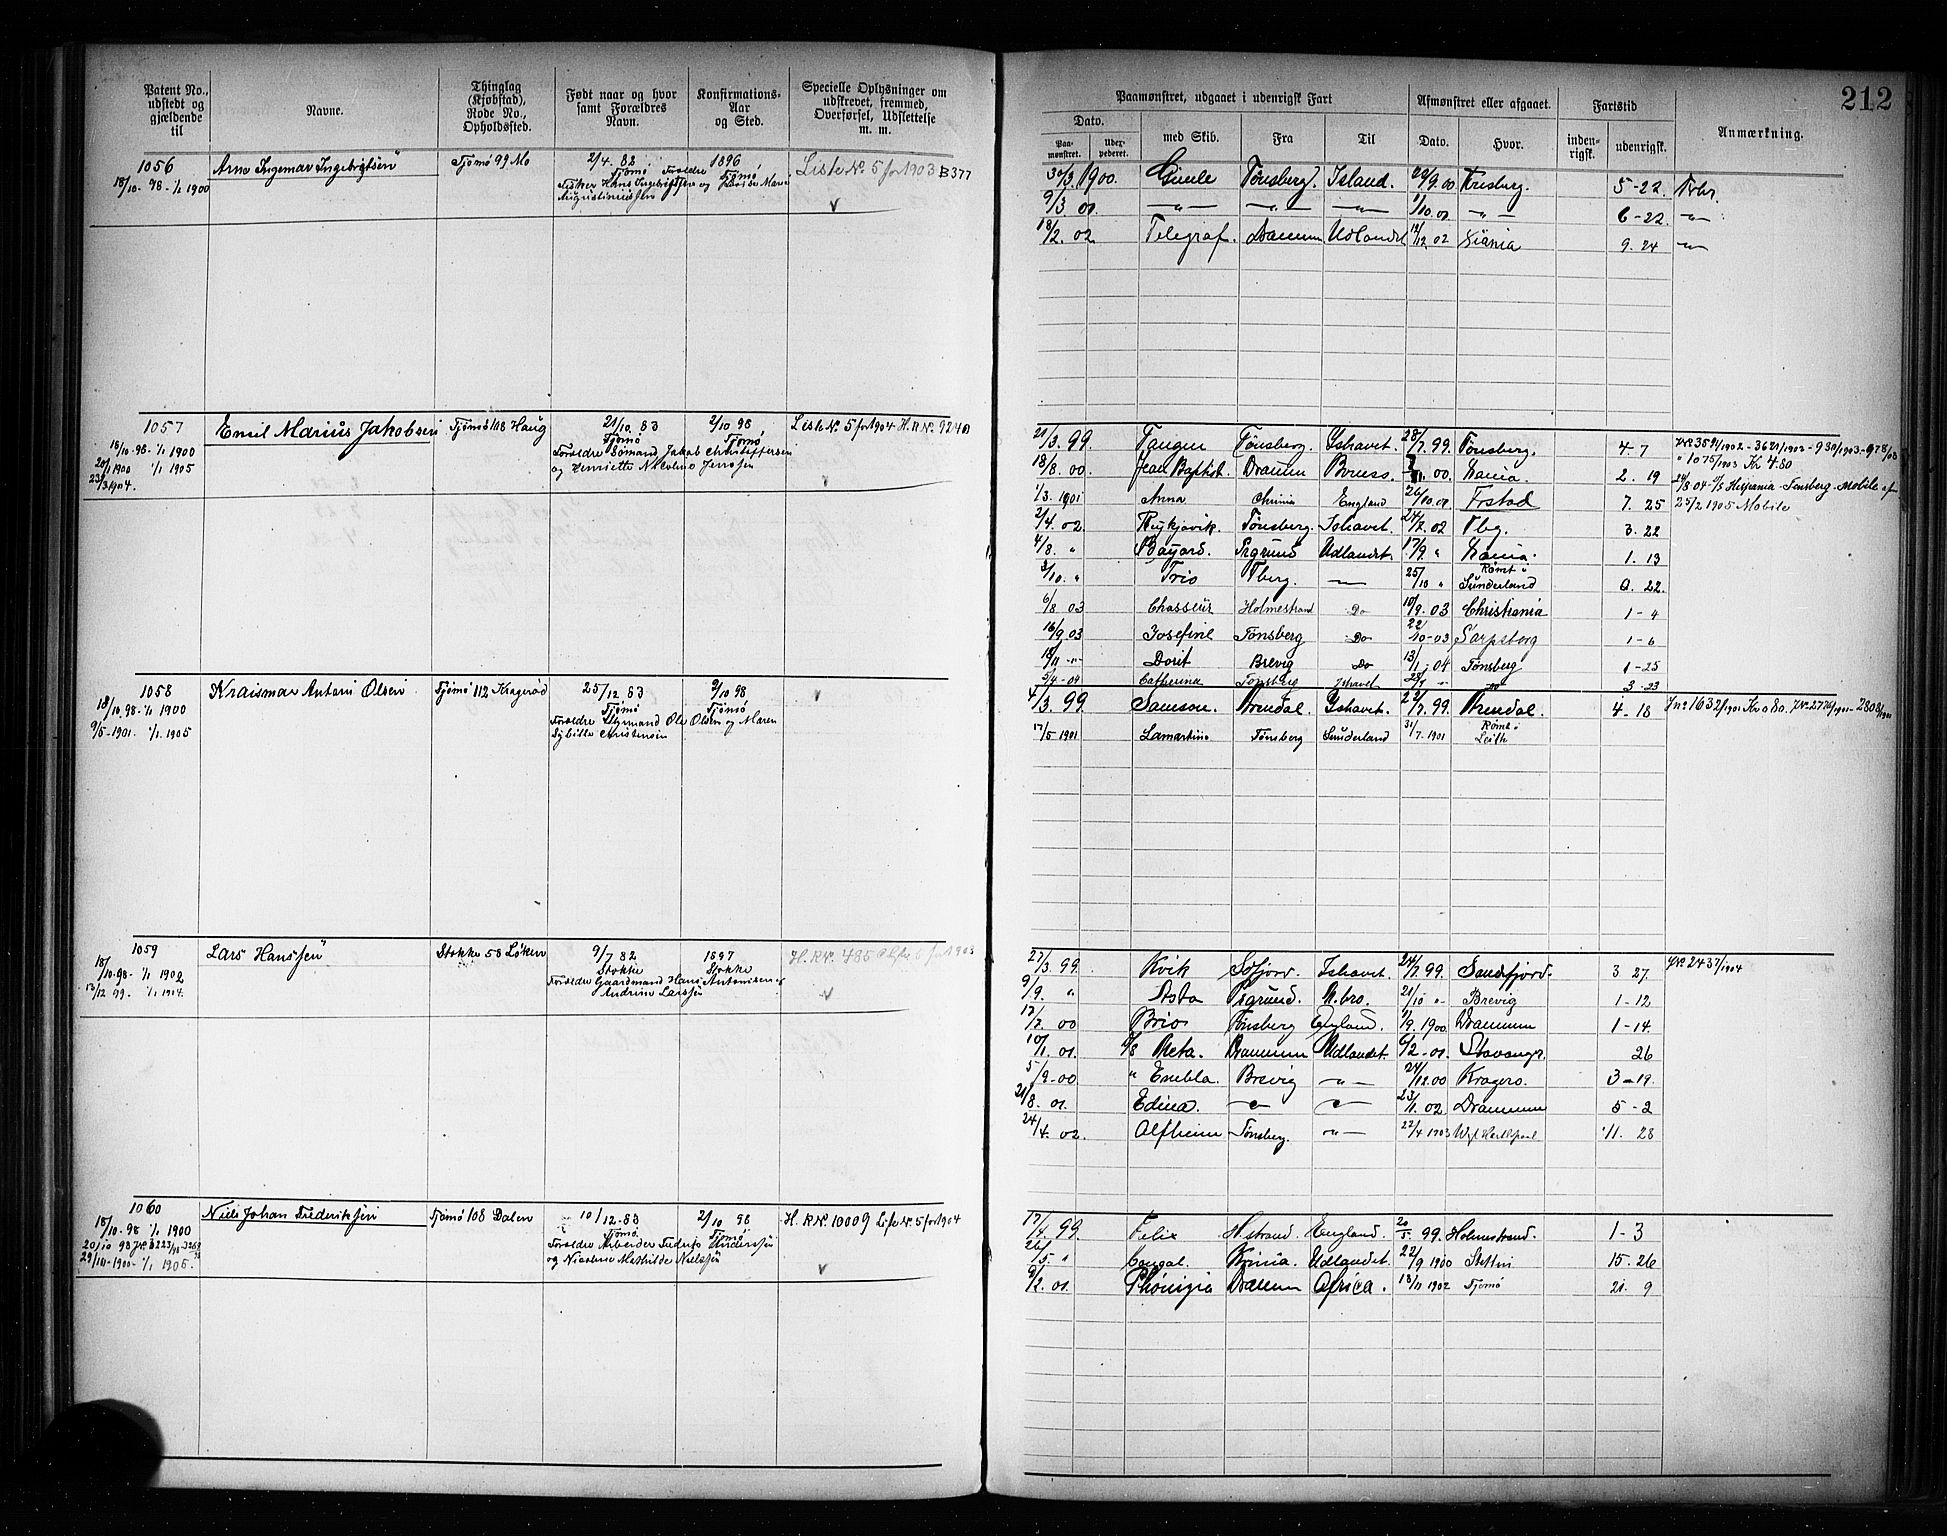 212
Patent No., udstedt og gjældende til
Navne.
Thinglag (Kjøbstad), Rode No., Opholdssted.
Født naar og hvor samt Forældres Navn.
Konfirmations-Aar og Sted.
Specielle Oplysninger om udskrevet, fremmed, Overførsel, Udslettelse m. m.
Paamønstret, udgaaet i udenrigsk Fart
Afmønstret eller afgaaet.
Fartstid
Anmærkning.
Dato.
Paa-mønstret.
Udex-pederet.
med Skib.
Fra
Til
Dato.
Hvor.
inden-rigsk.
udenrigsk.
1056
18/10-98-1/1 1900
Arne Ingemar Ingebrigtsen
Tjømø 99 Mo
2/4. 82. Tjømø Forældre
Fisker Hans Ingebrigtsen og
Augustinussen
1896
Tjømø
Liste No. 5 for 1903 B377
1900. Tønsberg. Island. 29/9.00 Tønsberg. 5-22
9/3 01. -"- -"- -"- 1/10.01. -"- 6-22. -"-
18/2. 02. Telegraf. Drammen Udlandet 12/12 02 Xiania 9. 24 -"-
1057
18/10-98-1/1 1900
20/1 1900 1/1 1905
23/3 1904.
Emil Marius Jakobsen
Tjømø 108 Haug
21/10. 83
Tjømø
Forældre Sømand Jakob Christoffersen
og Henriette Nicoline Jenssen
2/10 98
Tjømø
Liste No. 5 for 1904 H.R No. 924
21/3. 99. Tangen Tønsberg. Ishavet. 28/7. 99. Tønsberg. 4-7
18/8. 00. Jean Baptist. Drammen 00. Xania. 2. 19
1/3. 1901 Anna England 26/10.01 Frstad 7. 25
2/4. 02 Reykjavik. Tønsberg. Ishavet. 24/7. 02 Tbg. 3. 22
4/8. " Bayard. Prgrund Udlandet. 17/9. " Xania. 1. 13
3/10. " Trio Tberg. -"- 25/10 " Rømt i Sunderland 0. 22.
6/8 03 Chasseur Holmestrand Do 10/9. 03 Christiania 1-4
16/9 03 Josefine Tønsberg Do 22/10-03 Sarpsborg 1-6
18/11 -"- Dorit Brevig Do 13/1-04 Tønsberg 1-25
5/4-04 Catherina Tønsberg Ishavet Do 3-23
J.No. 3591/1902-3621/1902-930/1903-978/03
" 1075/1903 Kr 4.80
24/8 04 Hispania-Tønsberg-Mobile af
25/2 1905 Mobile
1058
18/10.98-1/1 1900
9/5-1901 1/1. 1905
Kraismar Anton Olsen
Tjømø 112 Kragerød
25/12. 83
Tjømø
Forældre Styrmand Ole Olsen og Maren
Sybille Christensen
2/10 98
Tjømø
4/3. 99. Samson. Arendal. Ishavet. 22/7. 99. Arendal. 4-18
17/5 1901 Lamartine Tønsberg Sunderland 31/7. 1901 Rømt i Leith
J.No 1632/1901 Kr 0.80. J.No. 2776/1901-2808/1901
1059
18/10-98- 1/1 1902
13/12 99. 1/1. 1904.
Lars Hanssen
Stokke 58 Løken
9/7 82
Stokke
Forældre Gaardmand Hans Antonisen og
Andrine Larssen
1897
Stokke
H.R No. 485 for 1903
27/3. 99. Kvik Sdfjord. Ishavet. 24/7. 99. Sandefjord. 3 27.
9/9. " Asta Prgrund. 21/10 " Brevig 1-12
12/2. 00 Brio Tønsberg England. 1900. Drammen 1-14.
10/1. 01. Meta. Drammen Udlandet. 6/2-01. Stavanger. 26
5/9-00 Brevig -"- 24/12.00 Kragerø. 3-19.
21/8. 01. Edina. -"- -"- 23/1. 02. Drammen 5-2
24/4. 02. Alfheim Tønsberg. -"- 22/4 1903 11. 28
J.No 2437/1904
1060
18/10-98 1/1 1900
20/10 98 J.No. 3223/98-3269/98
29/10-1900-1/1 1905.
Niels Johan Frederiksen
Tjømø 108 Dalen
10/12.83
Tjømø
Forældre Arbeider Anderssen
og Nicoline Mathilde Nielssen
2/10 98
Tjømø
H. R No. 10009 Liste No. 5 for 1904
17/4. 99. Felix Hstrand. England. 20/5. 99. Holmestrand. 1-3
26/5. " Congal. Krinia. Udlandet. 22/9 1900 Stettin 15-26
9/2. 01. Drammen Africa. 18/11 1902 Tjømø 21. 9